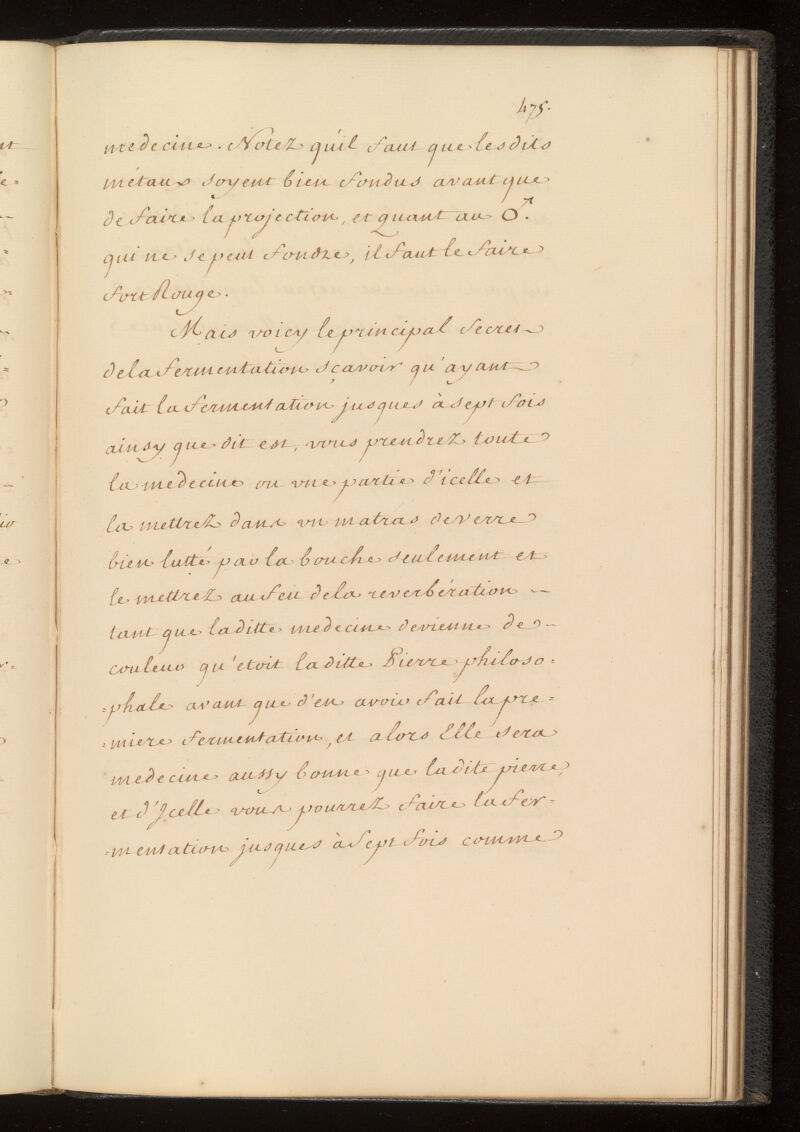 475.
medecine. Notez qu'il faut que lesdits
métaux soyent bien fondus avant que
de faire la projection, et quant au ♂.
qui ne se peut fondre, il faut le faire
fort Rouge.
Mais voicy le principal secret
de la fermentation sçavoir qu'ayant
fait la fermentation jusques à sept fois
ainsy que dit est, vous prendrez toute
la medecine ou vne partie d'icelle et
la mettrez dans vn matras de verre
bien lutté par la bouche seulement et
le mettrez au feu de la reverbération —
tant que laditte medecine devienne de —
couleur qu'etoit laditte Pierre philoso=
=phale avant que d'en avoir fait la pre=
=miere fermentation, et alors Elle sera
medecine aussy bonne que ladite pierre,
et d'Icelle vous pourrez faire la fer=
=mentation jusques à sept fois comme